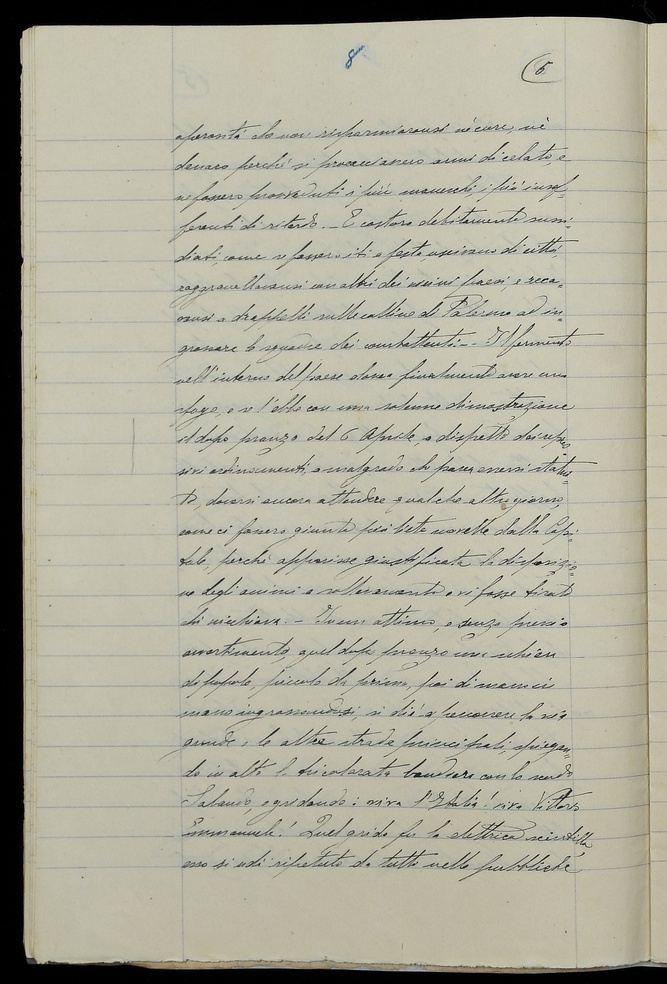 8
5
speranza che non risparmiaronsi nè cure, nè
denaro perchè si procacciassero armi di celato, e
ne fossero provveduti i più animosi, i più insof-
ferenti di ritardo. — E costoro debitamente mu-
niti, come se fossero iti a festa uscivano di città,
raggranellavansi con altri dei vicini paesi, e reca-
vansi a drappelli sulle colline di Palermo ad in-
grossare le squadre dei combattenti — Il fermento
nell'interno del paese dovea finalmente avere uno
sfogo, e se l'ebbe con una solenne dimostrazione
il dopo pranzo del 6 Aprile, a dispetto dei repres-
sivi ordinamenti, e malgrado che pareva essersi statui-
to, doversi ancora attendere qualche altro giorno,
come ci fossero giunte più liete novelle dalla Capi-
tale, perchè apparisse giustificata la disposizio-
ne degli animi a sollevamento e vi fosse tirato
chi nicchiava. — In un attimo, e senza previo
avvertimento, quel dopo pranzo una schiera
di popolo, piccola da prima, poi di mano in
mano ingrossandosi, si diè a percorrere la via
grande e le altre strade principali, spiegan-
do in alto la tricolorata bandiera con lo scudo
Sabaudo, e gridando: viva l'Italia! viva Vittorio
Emmanuele! Quel grido fu la elettrica scintilla,
esso si udì ripetuto da tutti nelle pubbliche